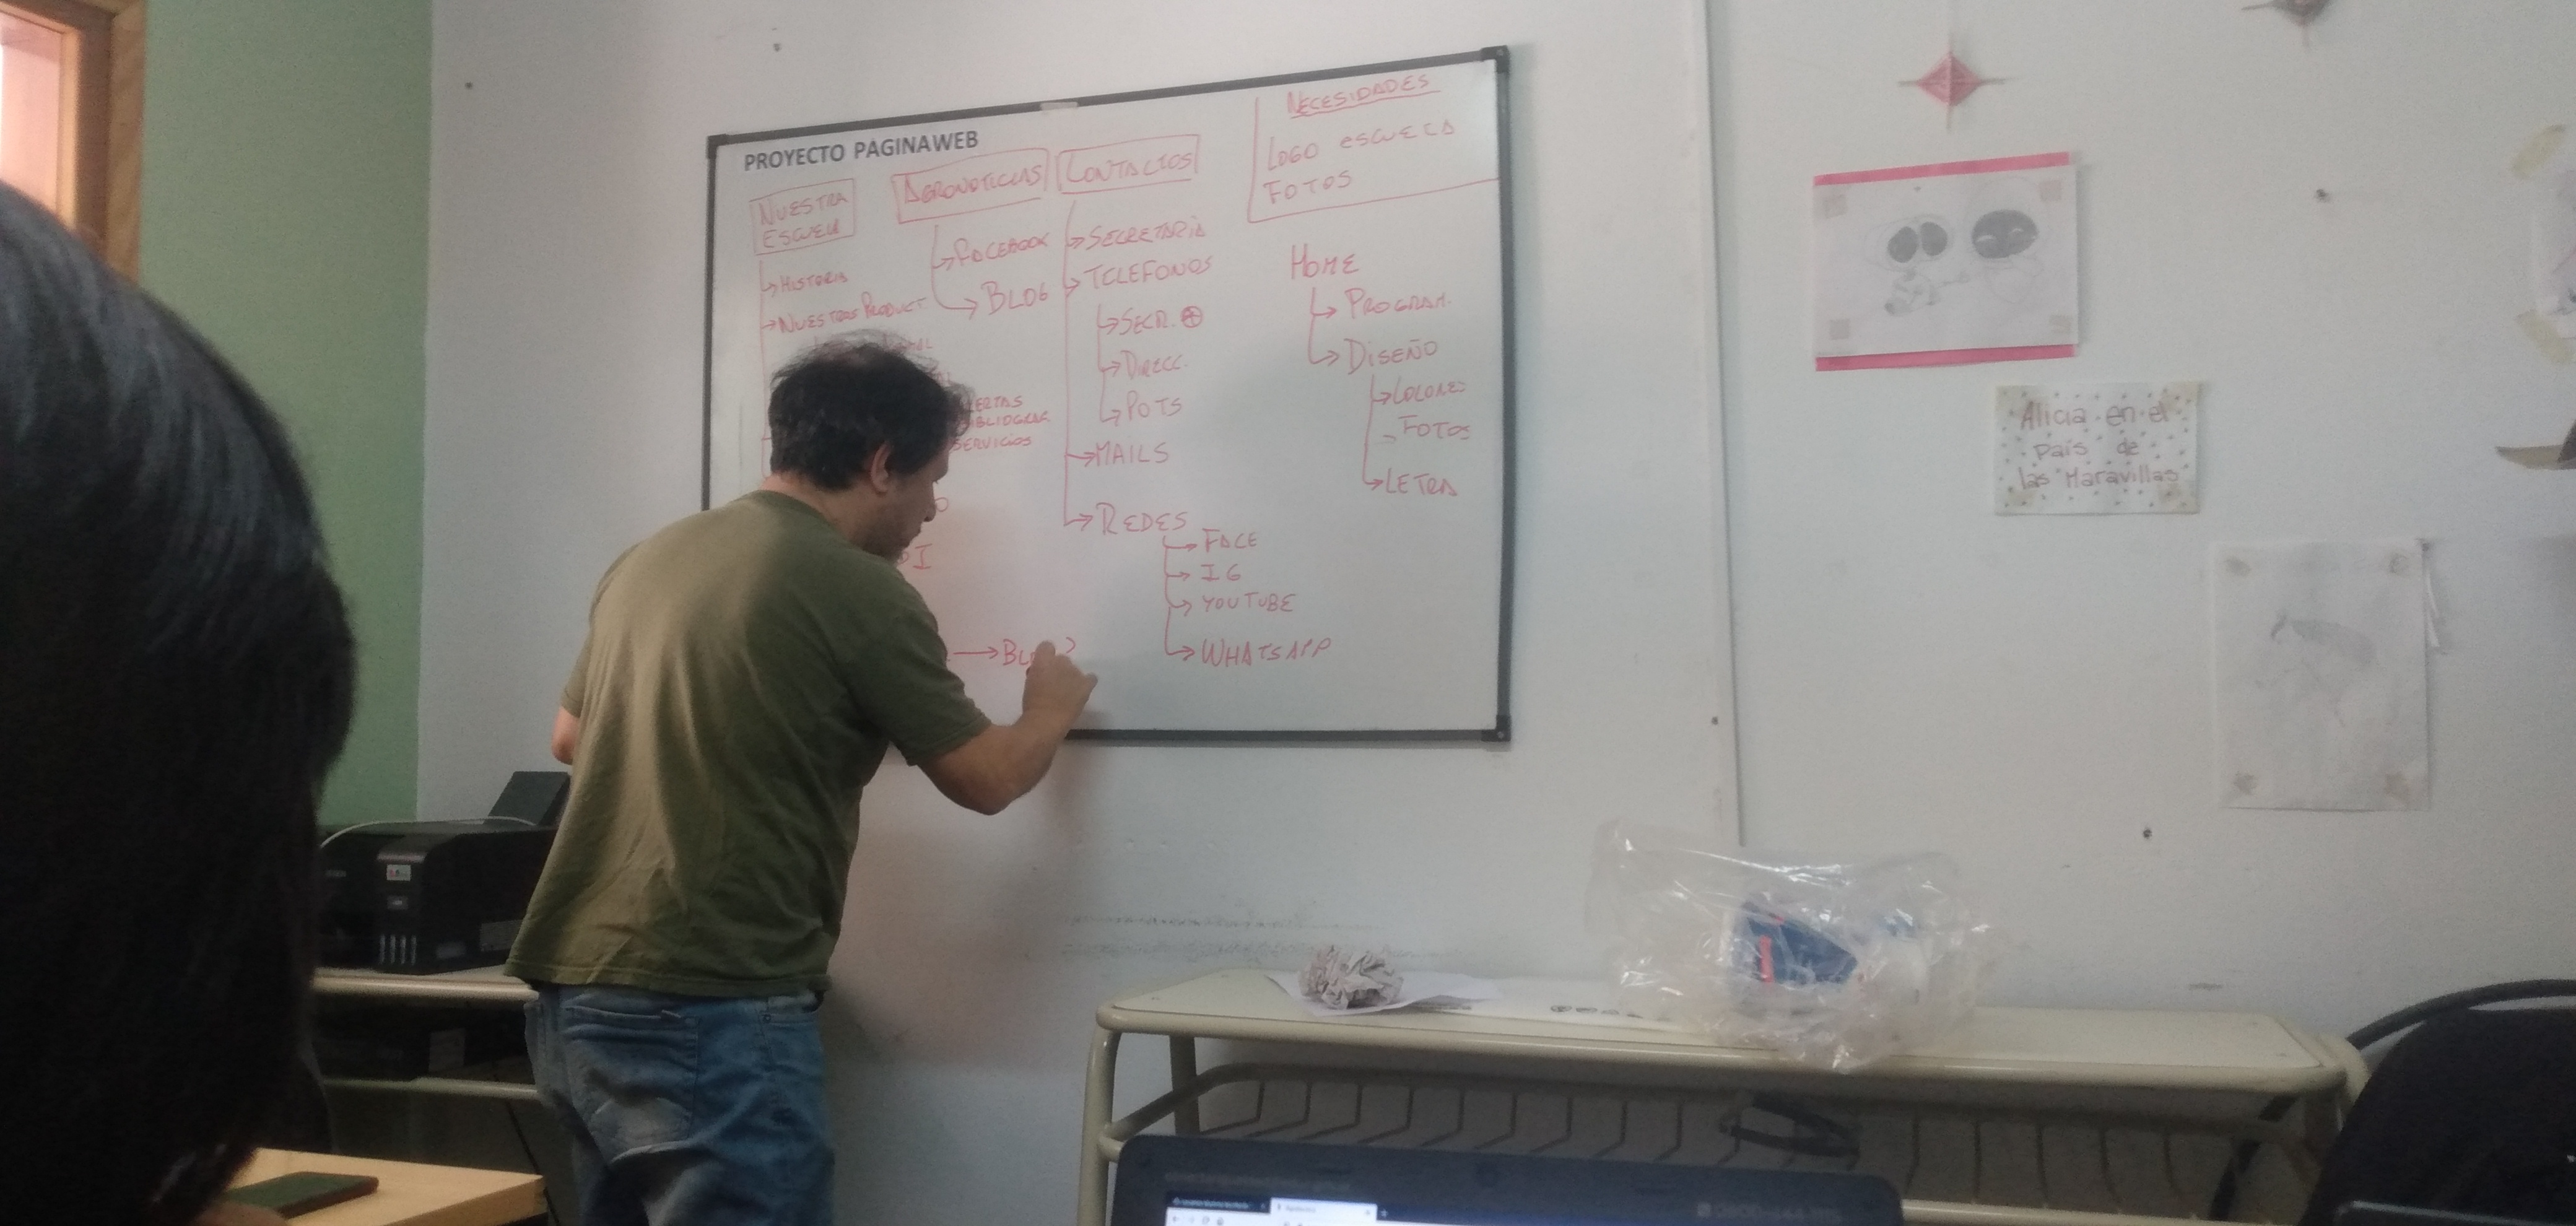 PROYECTO PAGINAWEB
NUESTRA
ESCUEL
HISTORIA
NUESTROS PRODUCT.
AGRONOTICIAS
FACEBOOK
BLOG
ERTAS
BIBLIOGRAF
SERVICIOS
CONTACTOS
SECRETARIA
TELEFONOS
SECR.
DIRECC.
POTS
MAILS
REDES
FACE
IG
YOUTUBE
WHATSAPP
NECESIDADES
LOGO ESCUELA
FOTOS
HOME
PROGRAM.
DISEÑO
COLORES
FOTOS
LETRA
Alicia en el
País de
las Maravillas